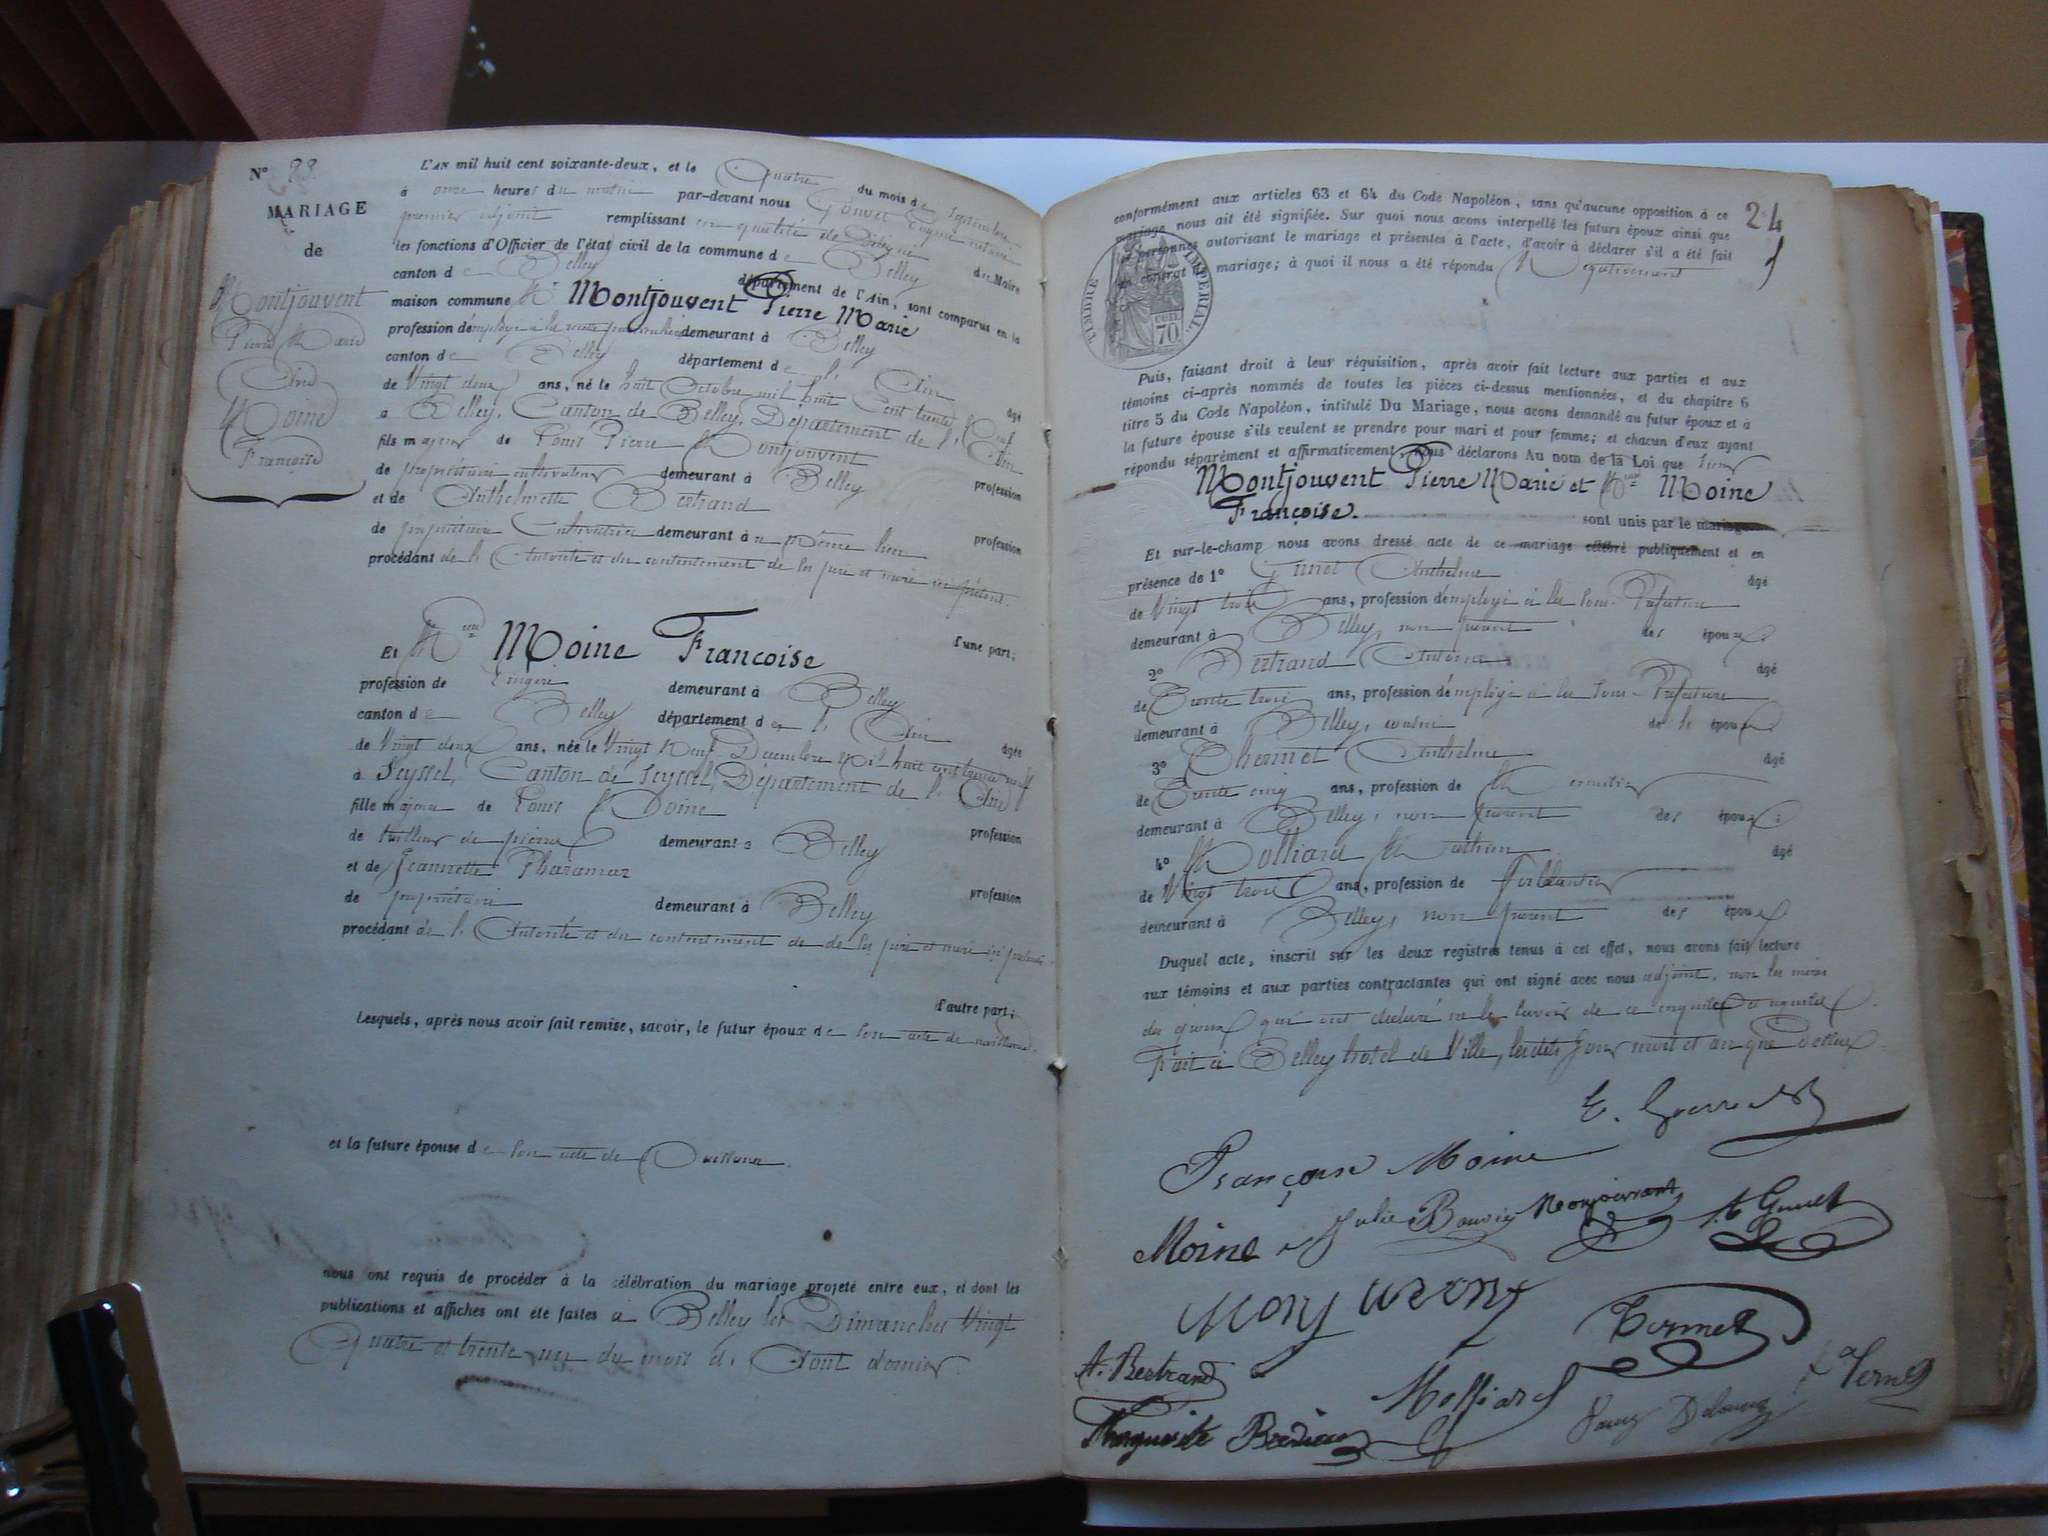 N° 23.
MARIAGE
de
Montjouvent
Pierre Marie
Avec
Moine
Françoise
L'AN mil huit cent soixante-deux, et le Quatre du mois de Septembre
à onze heures du matin par-devant nous
premier adjoint remplissant en qualité de Délégué du Maire
les fonctions d'Officier de l'état civil de la commune de Belley
canton de Belley département de l'Ain, sont comparus en la
maison commune Mr Montjouvent Pierre Marie
profession d'employé à la demeurant à Belley
canton de Belley département de l'Ain âgé
de Vingt deux ans, né le huit Octobre mil huit Cent trente Neuf
à Belley, Canton de Belley, Département de l'Ain
fils majeur de Louis Pierre Montjouvent profession
de propriétaire cultivateur demeurant à Belley
et de Anthelmette Bertrand profession
de propriétaire Cultivatrice demeurant au même lieu
procédant de l'Autorité et du contentement de ses père et mère ici présent.
d'une part;
Et Melle Moine Françoise
profession de Lingère demeurant à Belley
canton de Belley département de l'Ain âgée
de Vingt deux ans, née le Vingt Neuf Décembre Mil huit cent trente neuf
à Seyssel, Canton de Seyssel, Département de l'Ain
fille majeure de Louis Moine profession
de tailleur de pierres demeurant à Belley
et de Jeannette Pharamaz profession
de propriétaire demeurant à Belley
procédant de l'Autorité et du contentement de de ses père et mère ici présents.
d'autre part;
Lesquels, après nous avoir fait remise, savoir, le futur époux de son acte de naissance.
et la future épouse de son acte de Naissance.
nous ont requis de procéder à la célébration du mariage projeté entre eux, et dont les
publications et affiches ont été faites à Belley les Dimanches Vingt
Quatre et trente-un du mois d'Août dernier.
24
conformément aux articles 63 et 64 du Code Napoléon, sans qu'aucune opposition à ce
mariage nous ait été signifiée. Sur quoi nous avons interpellé les futurs époux ainsi que
les personnes autorisant le mariage et présentes à l'acte, d'avoir à déclarer s'il a été fait
un contrat de mariage; à quoi il nous a été répondu Négativement
TIMBRE IMPÉRIAL
70 cen
Puis, faisant droit à leur réquisition, après avoir fait lecture aux parties et aux
témoins ci-après nommés de toutes les pièces ci-dessus mentionnées, et du chapitre 6
titre 5 du Code Napoléon, intitulé Du Mariage, nous avons demandé au futur époux et à
la future épouse s'ils veulent se prendre pour mari et pour femme; et chacun d'eux ayant
répondu séparément et affirmativement, nous déclarons Au nom de la Loi que
Montjouvent Pierre Marie et Melle Moine
Françoise. sont unis par le mariage.
Et sur-le-champ nous avons dressé acte de ce mariage célébré publiquement et en
présence de 1° Anthelme âgé
de Vingt trois ans, profession d'employé à la Sous-Préfecture
demeurant à Belley, non parent des époux.
2° Bertrand Antoine âgé
de Trente trois ans, profession d'employé à la Sous-Préfecture
demeurant à Belley, cousin de l'époux.
3° Anthelme âgé
de Trente cinq ans, profession de Menuisier
demeurant à Belley, non parent des époux;
4° Molliard Mathieu âgé
de Vingt trois ans, profession de Ferblantier
demeurant à Belley, non parent des époux
Duquel acte, inscrit sur les deux registres tenus à cet effet, nous avons fait lecture
aux témoins et aux parties contractantes qui ont signé avec nous adjoint, non les mères
des époux qui ont déclaré ne le savoir de ce enquises et requises.
Fait à Belley hôtel de Ville, lesdits Jour mois et an que dessus.
Françoise Moine
Moine Julie Bouvier Monjouvent
A. Bertrand Molliard
Marguerite